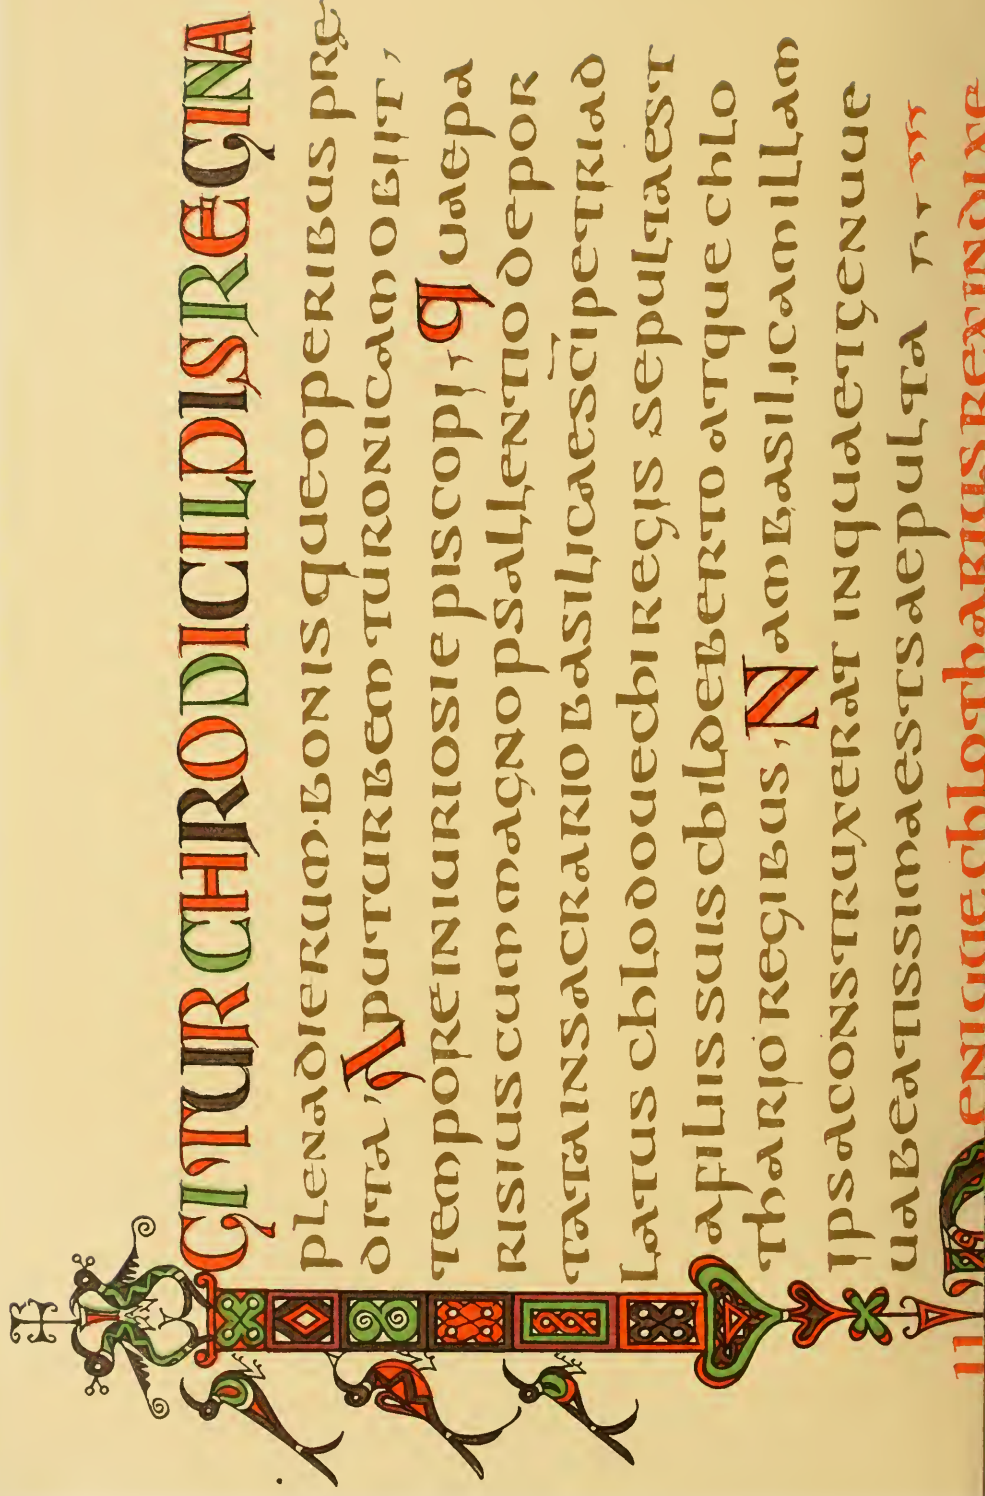 IGITUR CHRODICILDIS REGINA
plena dierum· bonisque operibus prę
dita, Aput urbem turonicam obiit,
tempore iniuriosi episcopi, quae pa
risius cum magno psallentio depor
tata in sacrario basilicae sc̄i petri ad
latus chlodouechi regis sepulta est
a filiis suis childeberto atque chlo
thario regibus, Nam basilicam illam
ipsa construxerat in qua et genuue
ua beatissima est saepulta
II Denique chlotharius rex indixe